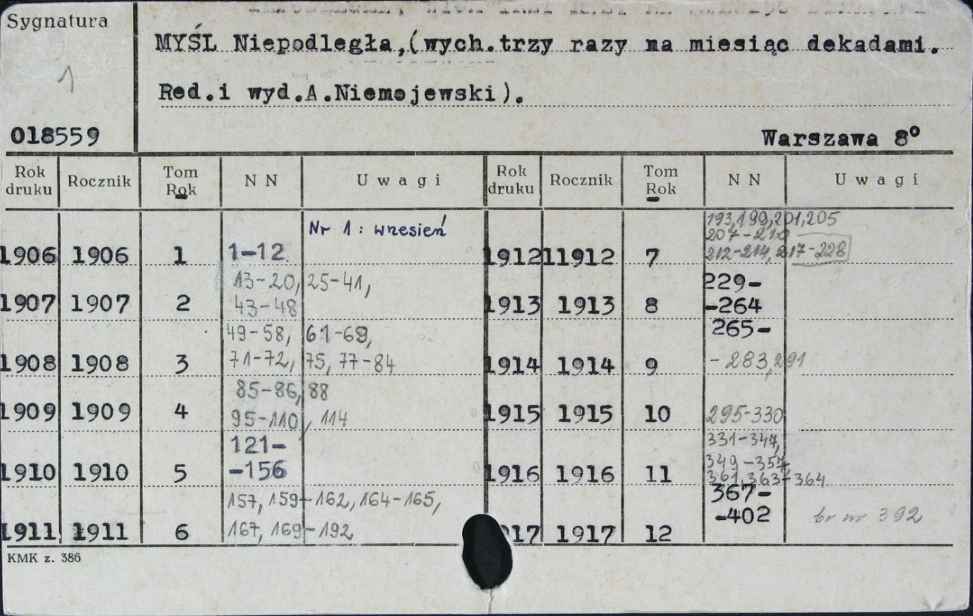 Sygnatura
1
018559
MYŚL Niepodległa,(wych.trzy razy na miesiąc dekadami.
Red.i wyd.A.Niemojewski).
Warszawa 8°
Rok druku Rocznik Tom Rok N N Uwagi Rok druku Rocznik Tom Rok N N Uwagi
1906 1906 1 1-12 Nr 1: wrzesień
1907 1907 2 13-20, 25-41,
43-48
1908 1908 3 49-58, 61-69,
71-72, 75, 77-84
1909 1909 4 85-86, 88
95-110, 114
1910 1910 5 121-
-156
1911 1911 6 157, 159-162, 164-165,
167, 169-192
1912 1912 7 193, 199, 201, 205
207-210
212-214, 217-228
1913 1913 8 229-
-264
1914 1914 9 265-
-283, 291
1915 1915 10 295-330
1916 1916 11 331-347,
349-357,
361, 363-364
17 1917 12 367-
-402 br nr 392
KMK z. 386